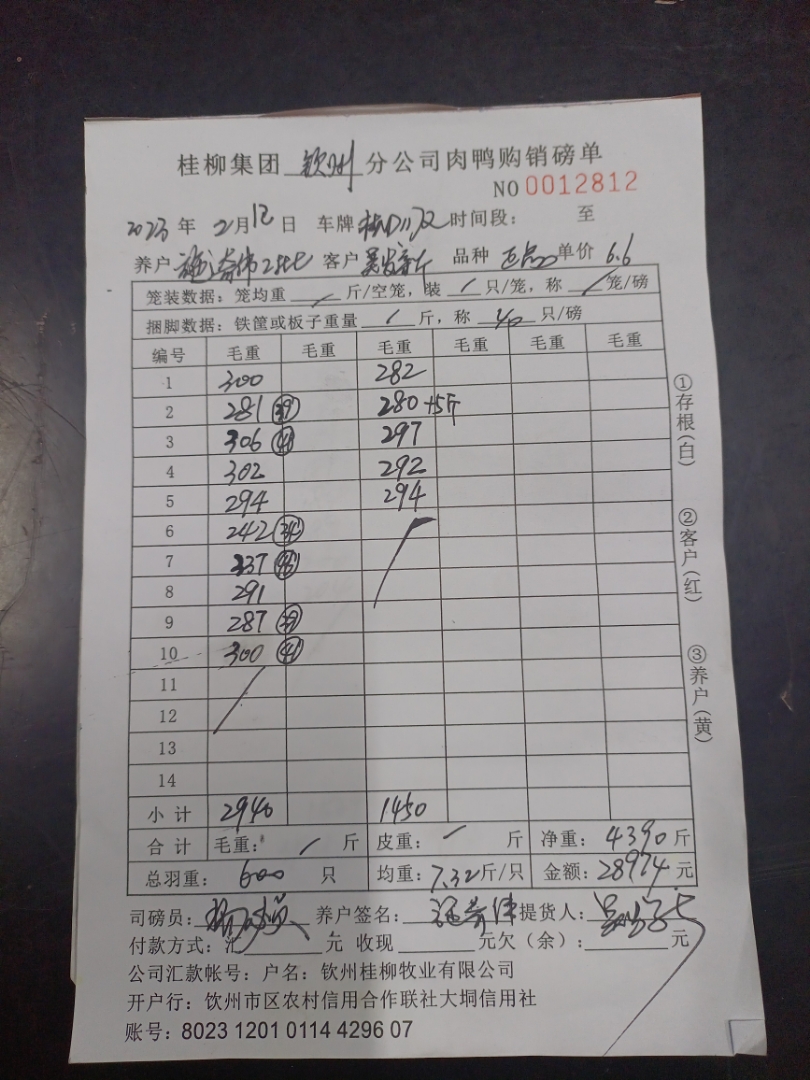 桂柳集团 钦州 分公司肉鸭购销磅单
NO 0012812
2023 年 2月12日 车牌 时间段： 至
养户 客户 品种 正品 单价 6.6
笼装数据：笼均重 / 斤/空笼，装 / 只/笼，称 / 笼/磅
捆脚数据：铁筐或板子重量 / 斤，称 40 只/磅
编号 毛重 毛重 毛重 毛重 毛重 毛重
1 300 282
2 281 (39) 280 +5斤
3 306 297
4 302 292
5 294 294
6 242
7 337
8 291
9 287 (39)
10 300 (41)
11
12
13
14
小计 2940 1450
合计 毛重： / 斤 皮重： / 斤 净重：4390斤
总羽重： 600 只 均重：7.32斤/只 金额：28974元
司磅员： 养户签名： 提货人：
付款方式：汇 元 收现 元欠（余）： 元
公司汇款帐号：户名：钦州桂柳牧业有限公司
开户行：钦州市区农村信用合作联社大垌信用社
账号：8023 1201 0114 4296 07
①存根（白）
②客户（红）
③养户（黄）